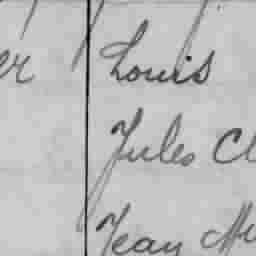 er Louis
Jules Cl
Jean